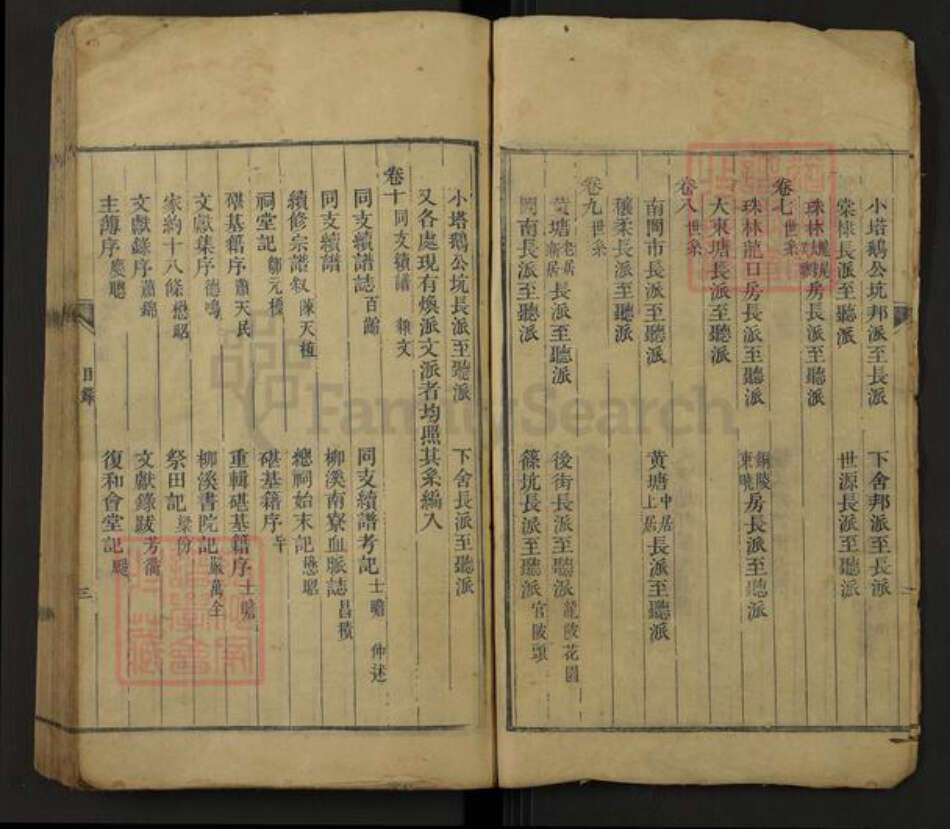 小塔鵝公坑邦派至長派 下舍邦派至長派
棠棣長派至聽派 世源長派至聽派
珠林房長派至聽派
卷七 世系
珠林龍口房長派至聽派 銅陵東曉房長派至聽派
大東塘長派至聽派
卷八 世系
南閶市長派至聽派 黃塘中居上居長派至聽派
穰柔長派至聽派
卷九 世系
黃塘老居新居長派至聽派 後街長派至聽派 龍陂花園
南長派至聽派 篠坑長派至聽派 官陂頭
小塔鵝公坑長派至聽派 下舍長派至聽派
又各處現有煥派文派者均照其系編入
卷十 同支續譜 雜文
同支續譜誌 百齡 同支續譜考記 士贍 仲述
同支續譜 柳溪南寮血脈誌 昌積
續修宗譜叙 陳天植 總祠始末記 懋昭
祠堂記 鄒元標 碪基籍序
碪基籍序 蕭天民 重輯碪基籍序 士贍
文獻集序 德鳴 柳溪書院記 萬全
家約十八條 懋昭 祭田記 梁份
文獻錄序 蕭錦 文獻錄跋 芳衢
主簿序 慶聰 復和會堂記 颺
目錄 三
FamilySearch